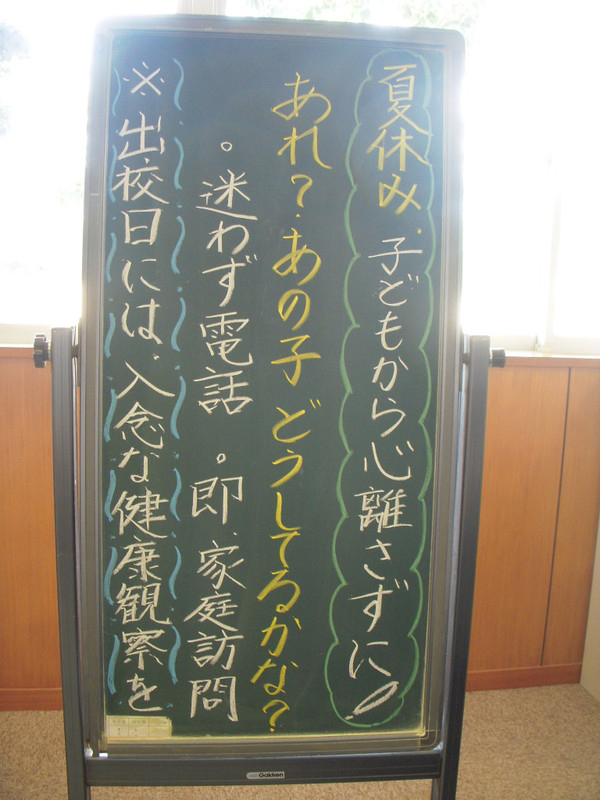 夏休み、子どもから心離さずに!
あれ?あの子どうしてるかな?
。迷わず電話 。即、家庭訪問
※出校日には、入念な健康観察を
Gakken